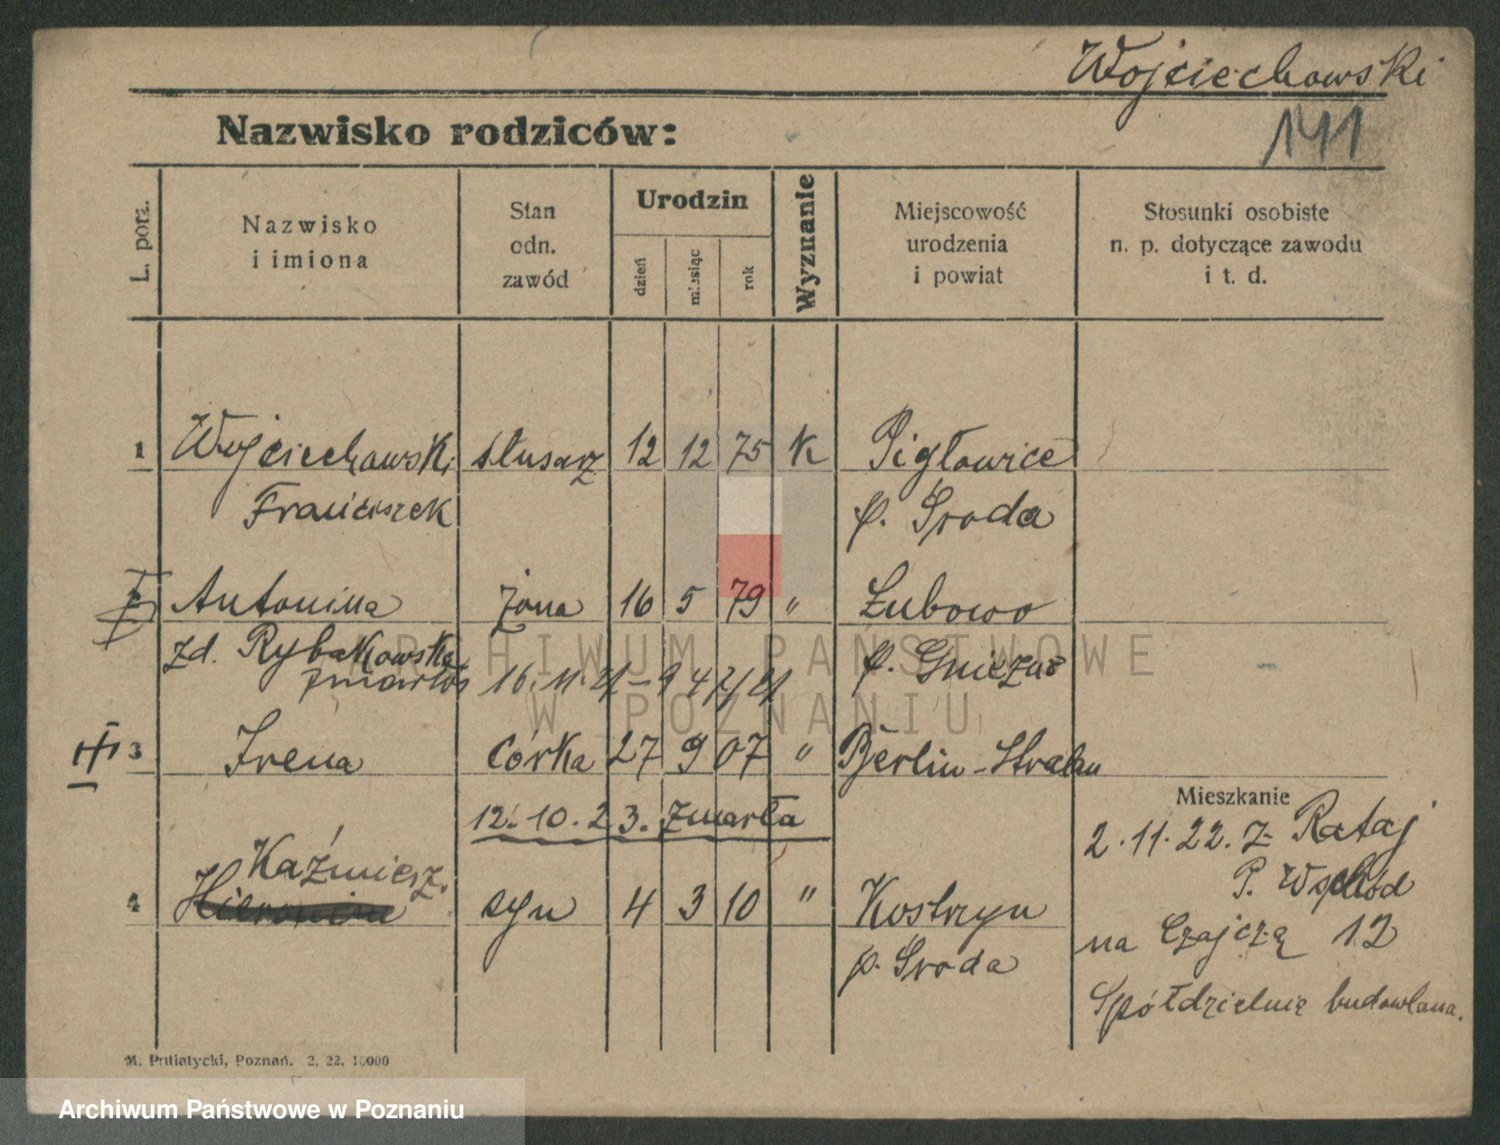 Wojciechowski
141
Nazwisko rodziców:
L. porz.
Nazwisko
i imiona
Stan
odn.
zawód
Urodzin
dzień
miesiąc
rok
Wyznanie
Miejscowość
urodzenia
i powiat
Stosunki osobiste
n. p. dotyczące zawodu
i t. d.
1 Wojciechowski ślusarz 12 12 75 K Pigłowice
Franciszek p. Środa
2 Antonina żona 16 5 79 " Łubowo
zd. Rybakowska p. Gniezno
zmarła 16.11.21
3 Irena córka 27 9 07 " Berlin-Stralau
12.10.23. zmarła
Mieszkanie
2.11.22. z Rataj
P. Wschód
na Czajczą 12
Spółdzielnię budowlana.
Kaźmierz.
4 Hieronim syn 4 3 10 " Kostrzyn
p. Środa
M. Putiatycki, Poznań. 2. 22. 10000
ARCHIWUM PAŃSTWOWE
W POZNANIU
Archiwum Państwowe w Poznaniu